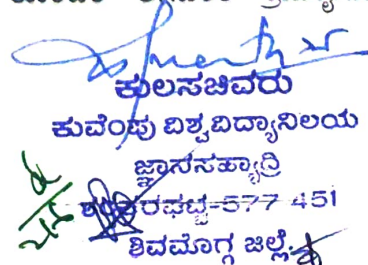 ಕುಲಸಚಿವರು
ಕುವೆಂಪು ವಿಶ್ವವಿದ್ಯಾನಿಲಯ
ಜ್ಞಾನಸಹ್ಯಾದ್ರಿ
ಶಂಕರಘಟ್ಟ-577 451
ಶಿವಮೊಗ್ಗ ಜಿಲ್ಲೆ.